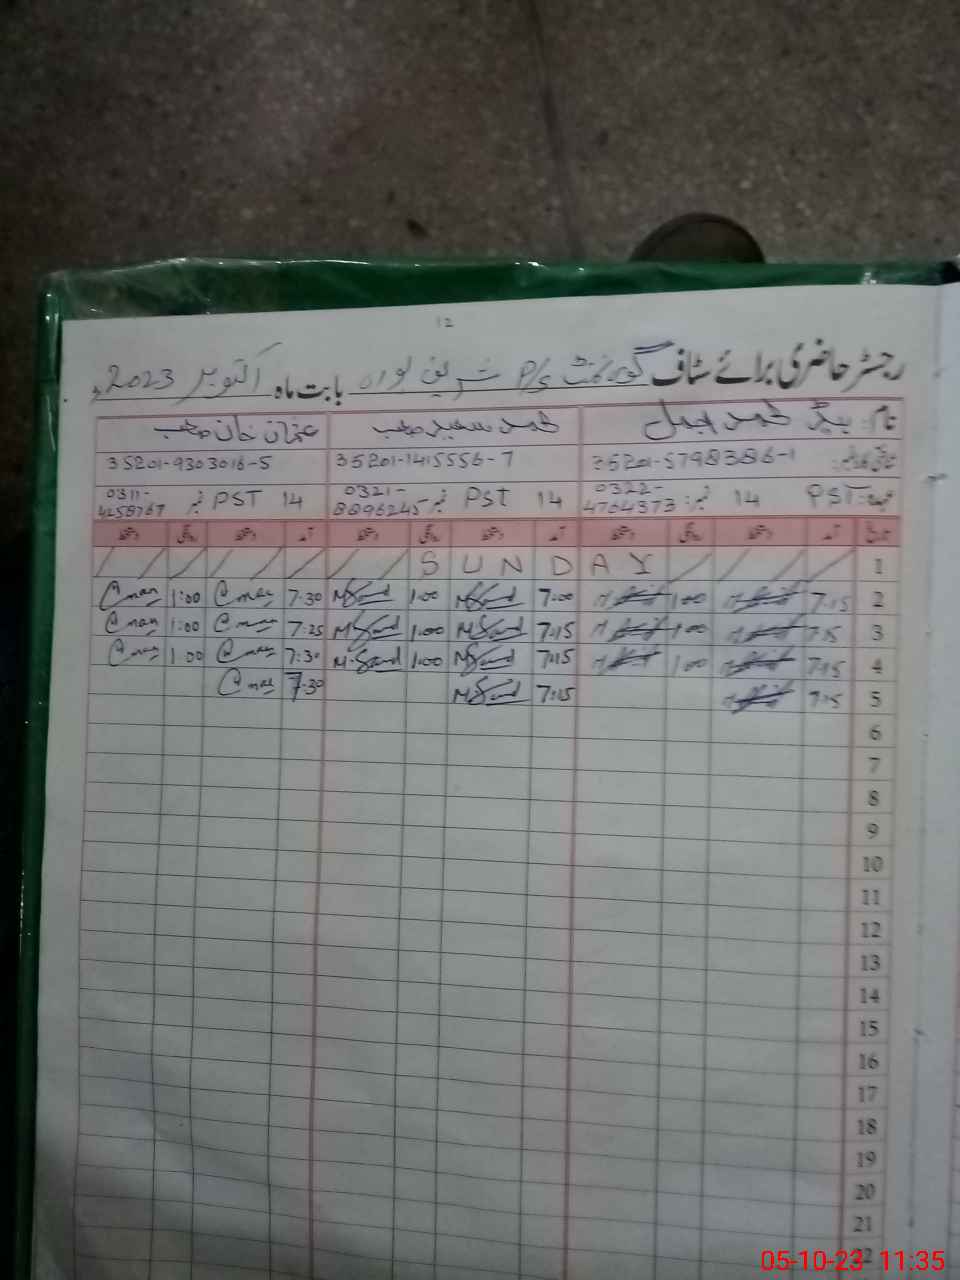 12
رجسٹر حاضری برائے سٹاف گورنمنٹ P/S شریف پورہ بابت ماہ اکتوبر 2023ء
نام: ہیڈ محمد اجمل محمد سعید صاحب عثمان خان صاحب
شناختی کارڈ نمبر: 35201-5798386-1 35201-1415556-7 35201-9303016-5
عہدہ: PST 14 نمبر: 0322-4764373 PST 14 نمبر 0321-8896245 PST 14 نمبر 0311-4258767
تاریخ آمد دستخط روانگی دستخط آمد دستخط روانگی دستخط آمد دستخط روانگی دستخط
1 SUNDAY
2 7:15 1:00 7:00 M.Saeed 1:00 M.Saeed 7:30 1:00
3 7:15 1:00 7:15 M.Saeed 1:00 M.Saeed 7:25 1:00
4 7:15 1:00 7:15 M.Saeed 1:00 M.Saeed 7:30 1:00
5 7:15 7:15 M.Saeed 7:30
6
7
8
9
10
11
12
13
14
15
16
17
18
19
20
21
22
05-10-23 11:35